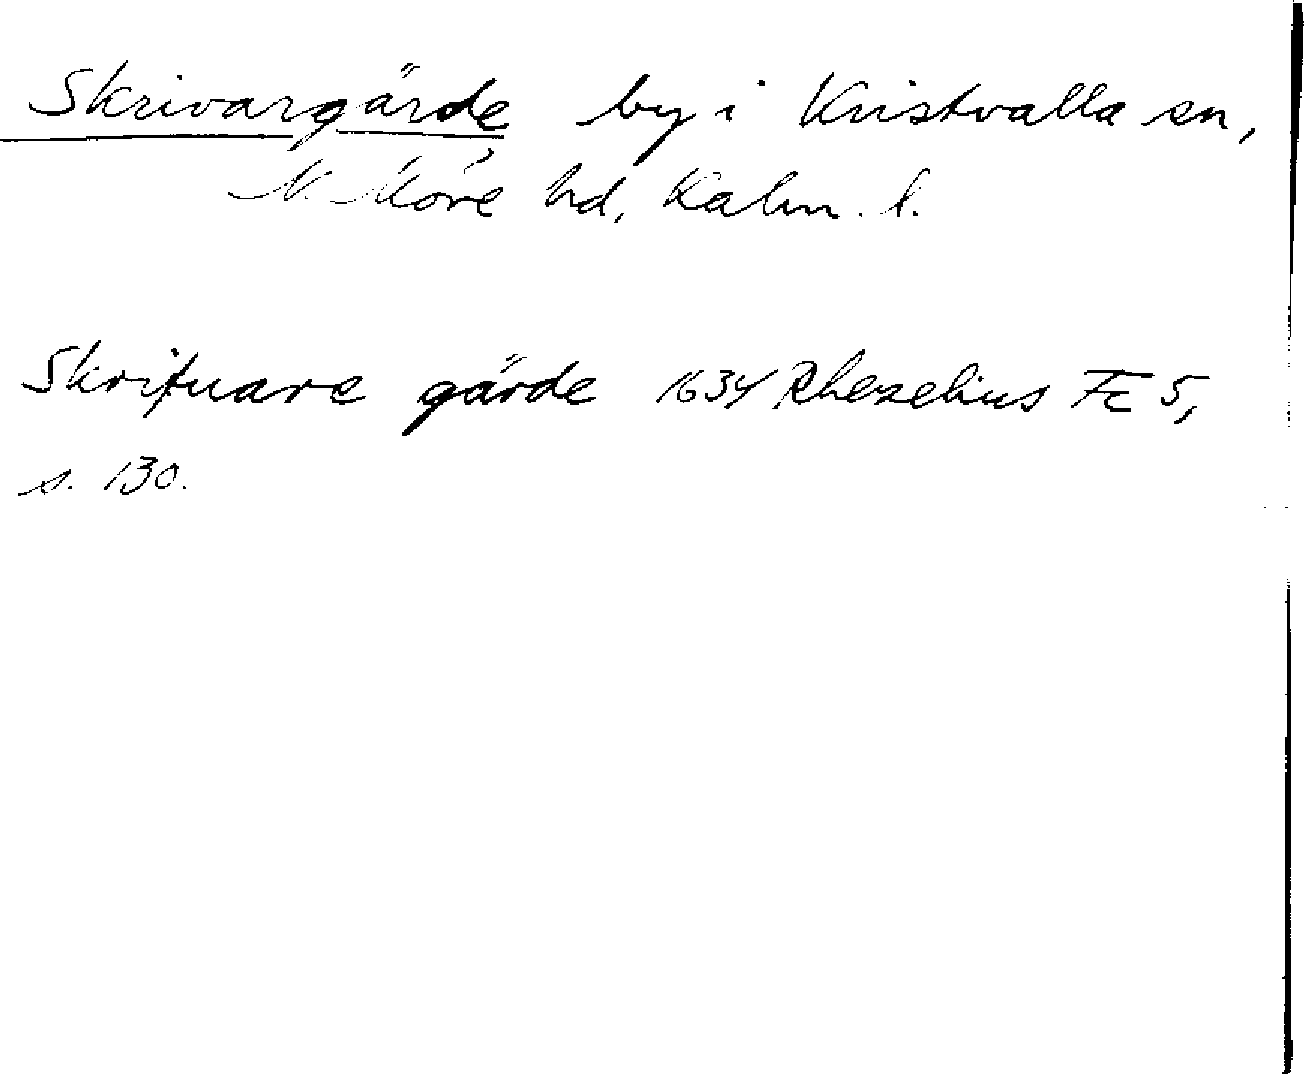 Skrivargärde by i Kristvalla sn,
N. Möre hd, Kalm. l.
Skrifuare gärde 1634 Rhezelius Fc 5,
s. 130.